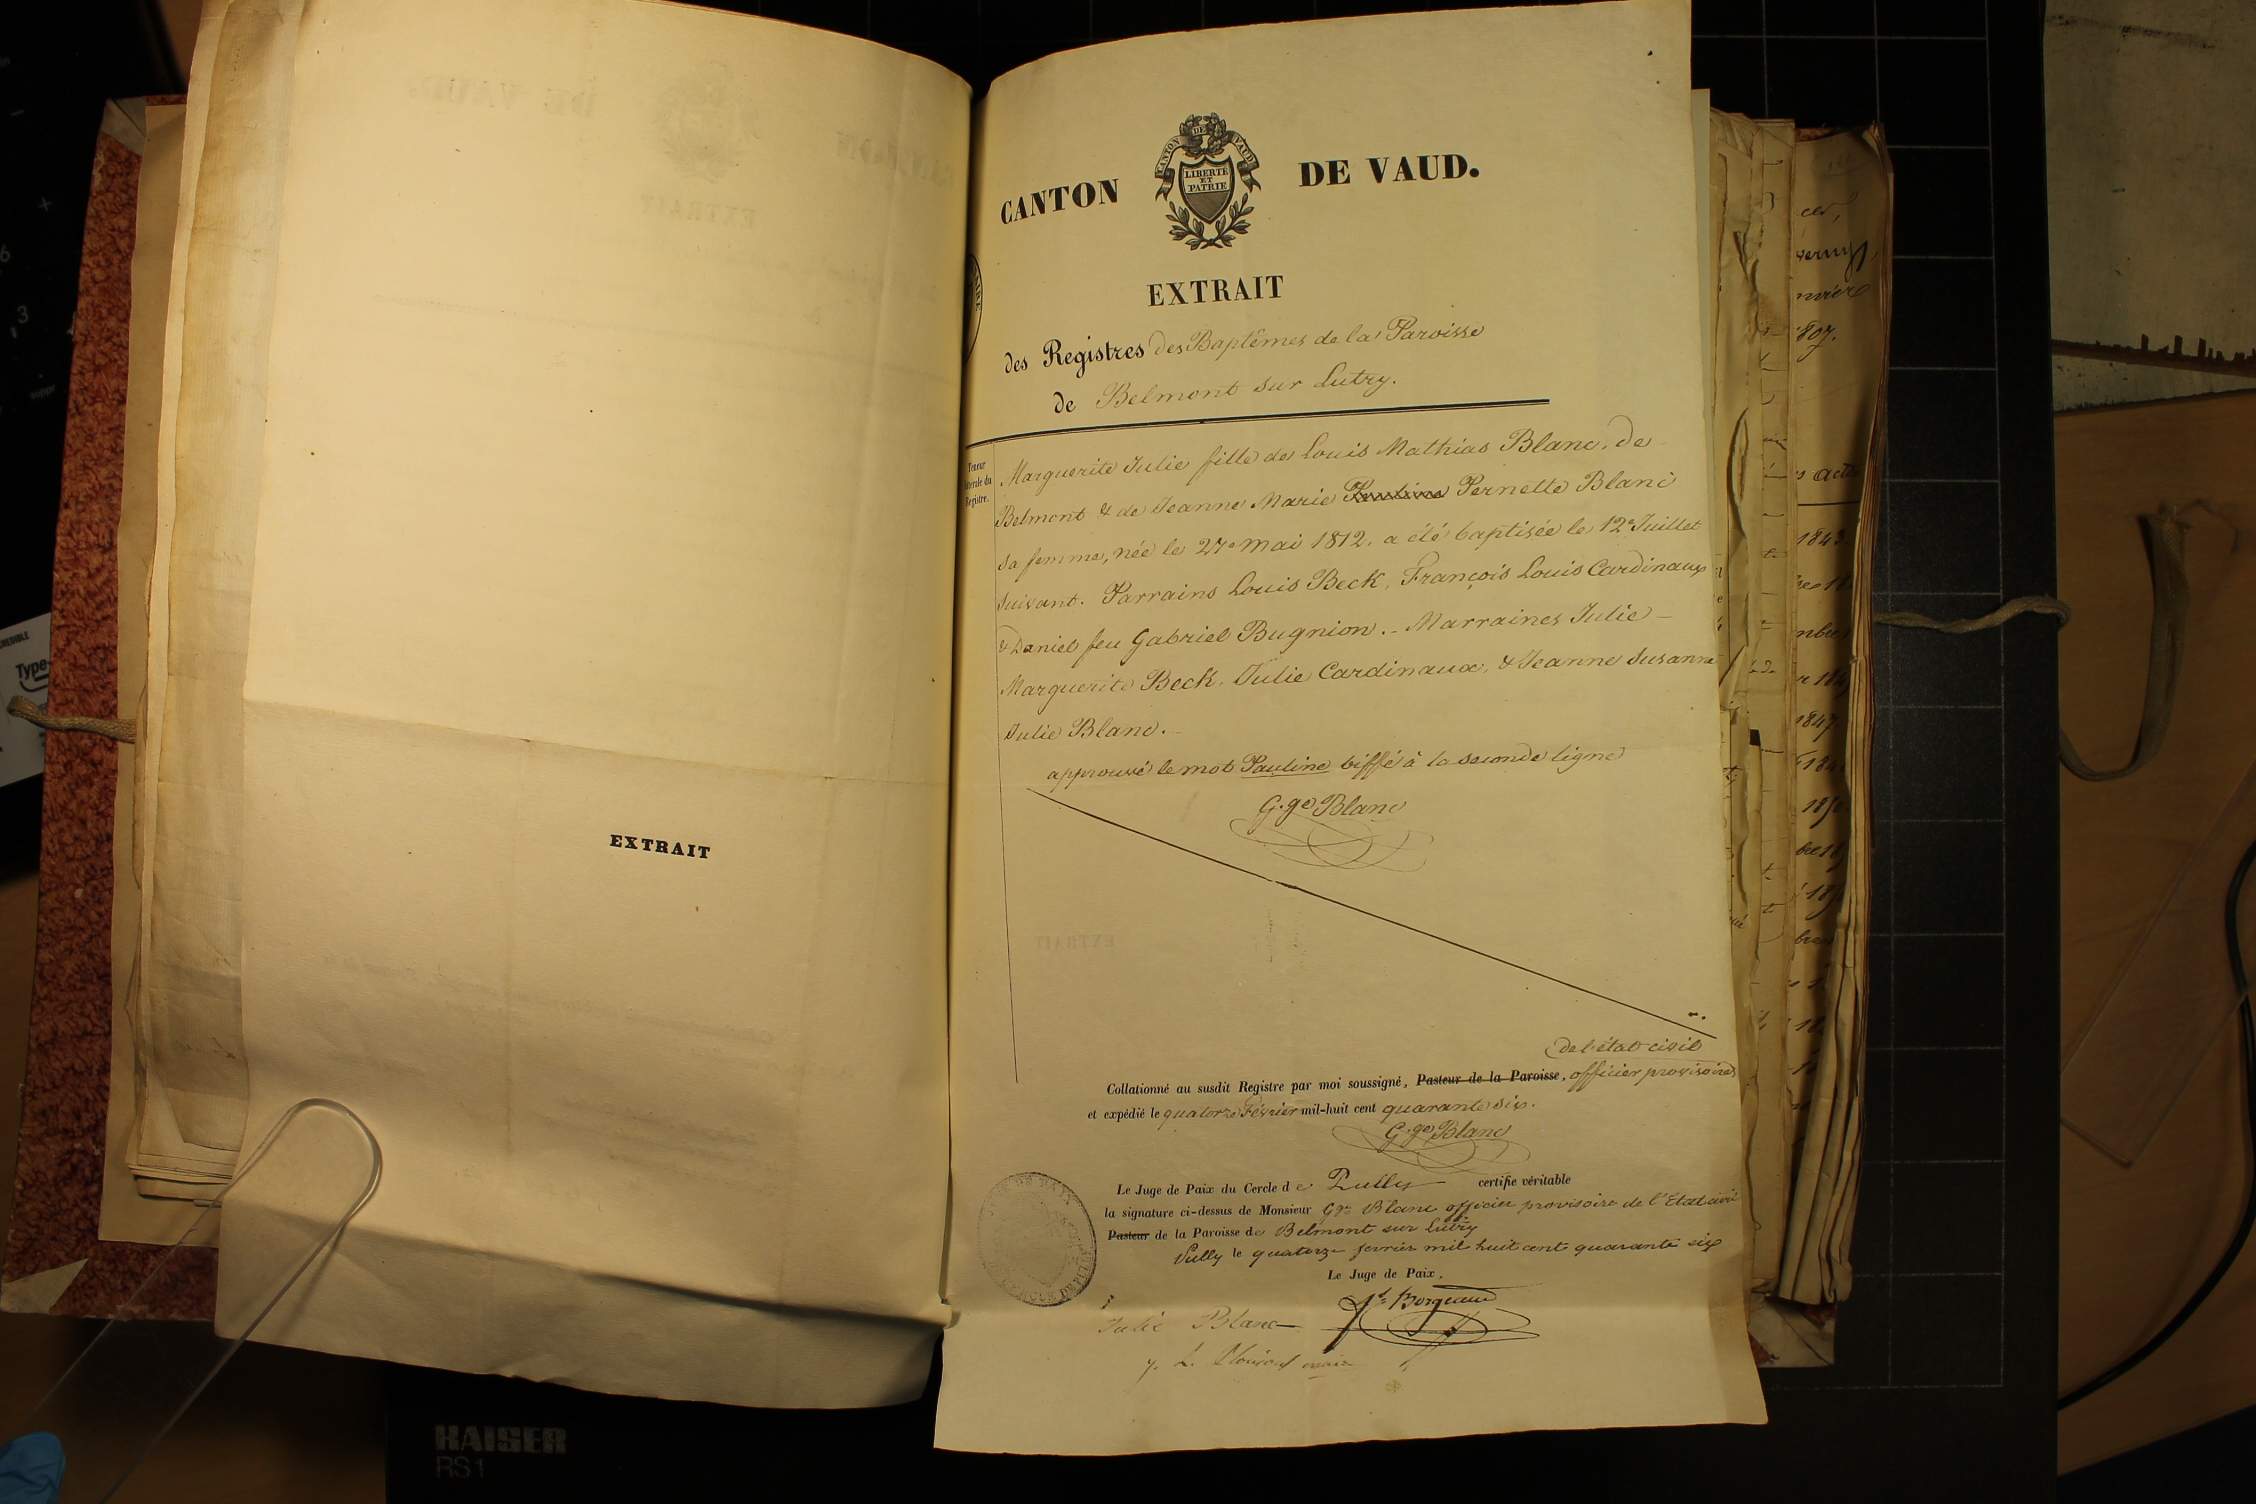 EXTRAIT
CANTON DE VAUD.
CANTON DE VAUD
LIBERTÉ
ET
PATRIE
EXTRAIT
des Registres des Baptêmes de la Paroisse
de Belmont sur Lutry.
Teneur
littérale du
Registre.
Marguerite Julie fille de Louis Mathias Blanc, de
Belmont & de Jeanne Marie Pauline Pernette Blanc
sa femme, née le 27e mai 1812. a été baptisée le 12e Juillet
suivant. Parrains Louis Beck, François Louis Cardinaux
& Daniel feu Gabriel Bugnion. - Marraines Julie -
Marguerite Beck, Julie Cardinaux, & Jeanne Susanne
Julie Blanc. -
approuvé le mot Pauline biffé à la seconde ligne
G.ge Blanc
de l'état civil
Collationné au susdit Registre par moi soussigné, Pasteur de la Paroisse, officier provisoire
et expédié le quatorze Février mil-huit cent quarante six.
G.ge Blanc
Le Juge de Paix du Cercle de Pully certifie véritable
la signature ci-dessus de Monsieur Gge Blanc officier provisoire de l'Etat civil
Pasteur de la Paroisse de Belmont sur Lutry
Pully le quatorze fevrier mil huit cent quarante six
Le Juge de Paix,
Borgeaud
Julie Blanc
KAISER
RS 1